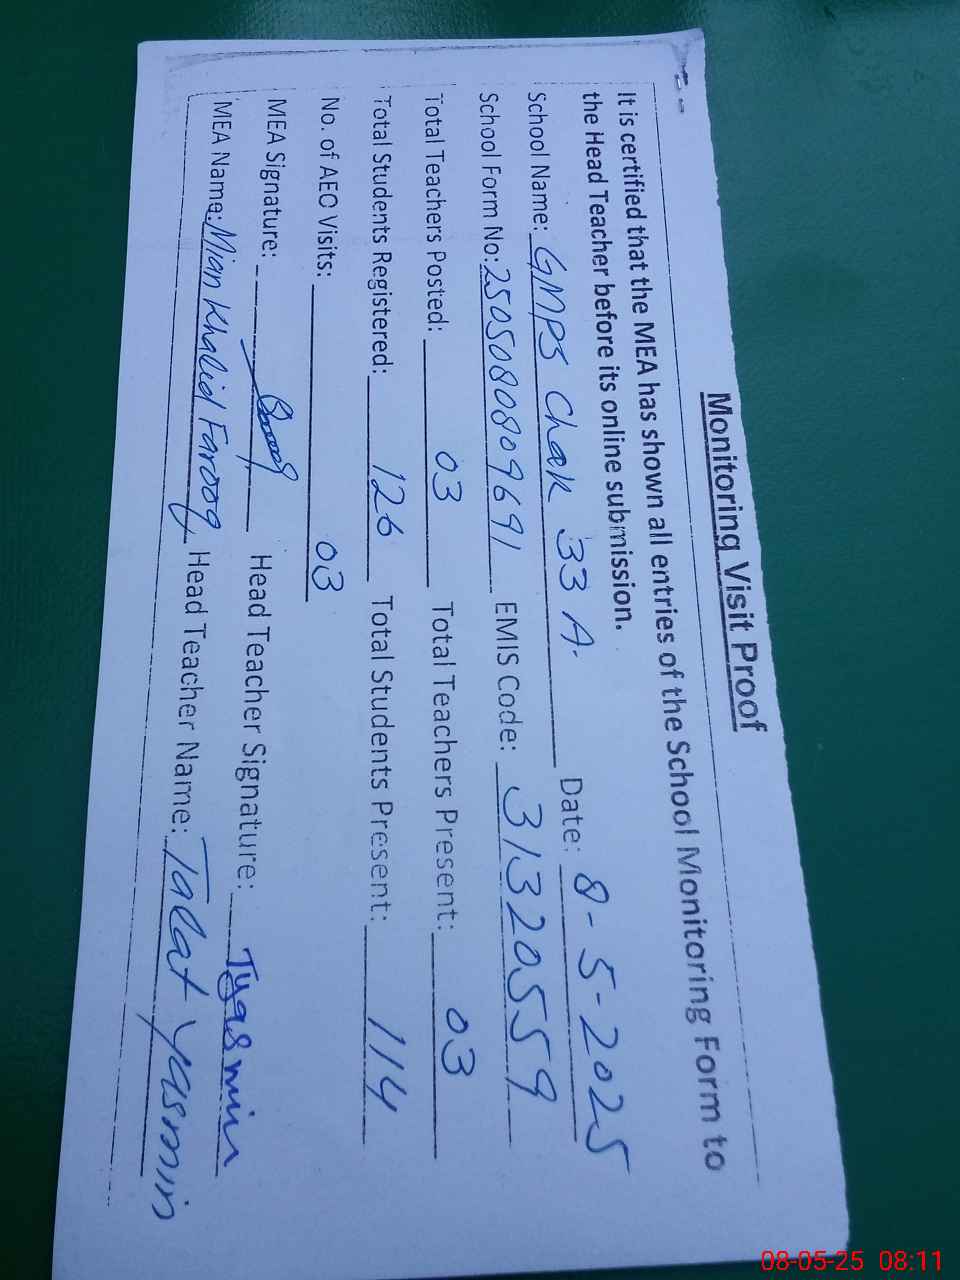 Monitoring Visit Proof
It is certified that the MEA has shown all entries of the School Monitoring Form to
the Head Teacher before its online submission.
School Name: GMPS Chak 33 A. Date: 8-5-2025
School Form No: 2505080809691 EMIS Code: 31320559
Total Teachers Posted: 03 Total Teachers Present: 03
Total Students Registered: 126 Total Students Present: 114
No. of AEO Visits: 03
MEA Signature: Head Teacher Signature: Tyasmin
MEA Name: Mian Khalid Farooq Head Teacher Name: Talat Yasmin
08-05-25 08:11